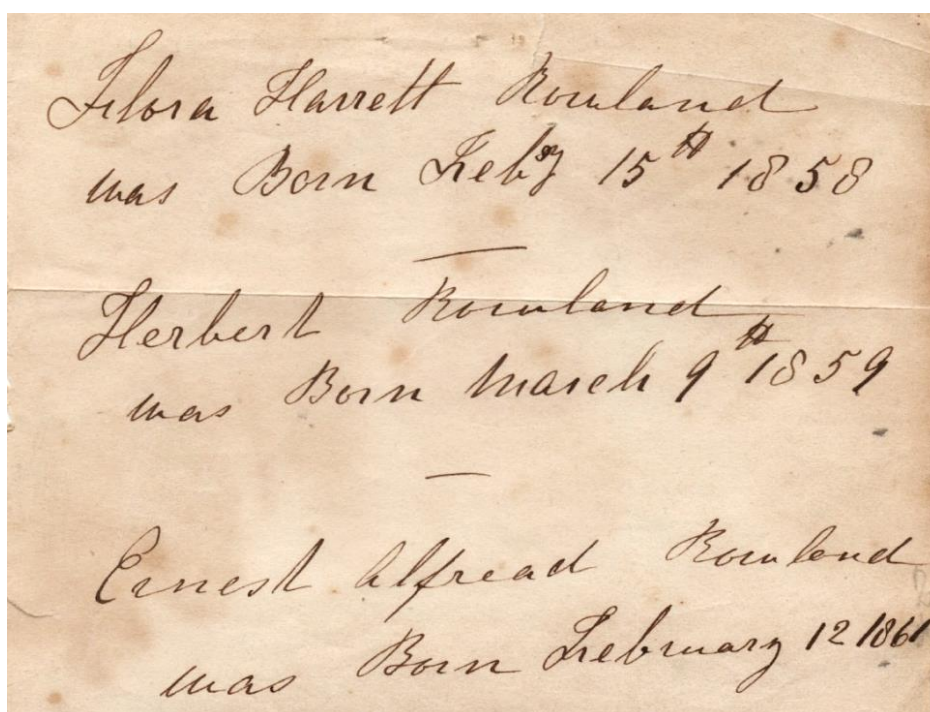 Flora Harrett Rowland
was Born Feby 15th 1858
Herbert Rowland
was Born March 9th 1859
Ernest Alfread Rowland
was Born February 12 1861